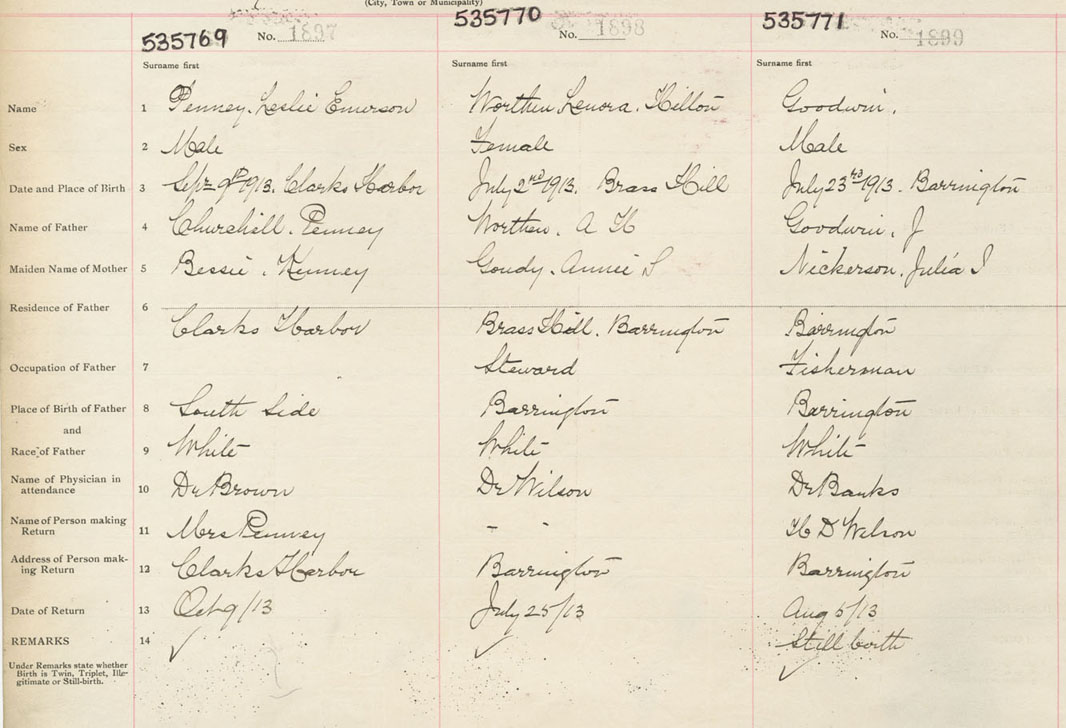 (City, Town or Municipality)
535769 No. 1897 535770 No. 1898 535771 No. 1899
Surname first Surname first Surname first
Name 1 Penney, Leslie Emerson Worthen Lenora. Hilton Goodwin,
Sex 2 Male Female Male
Date and Place of Birth 3 Sept 9th 1913. Clarks Harbor July 2nd 1913. Brass Hill July 23rd 1913. Barrington
Name of Father 4 Churchill. Penney Worthen. A H Goodwin, J
Maiden Name of Mother 5 Bessie. Kenney Goudy. Annie S Nickerson. Julia I
Residence of Father 6 Clarks Harbor Brass Hill. Barrington Barrington
Occupation of Father 7 Steward Fisherman
Place of Birth of Father 8 South Side Barrington Barrington
and
Race of Father 9 White White White
Name of Physician in
attendance 10 Dr Brown Dr Wilson Dr Banks
Name of Person making
Return 11 Mrs Penney - - H D Wilson
Address of Person mak-
ing Return 12 Clarks Harbor Barrington Barrington
Date of Return 13 Oct 9/13 July 25/13 Aug 5/13
REMARKS 14 ✓ ✓ Still borth ✓
Under Remarks state whether
Birth is Twin, Triplet, Ille-
gitimate or Still-birth.